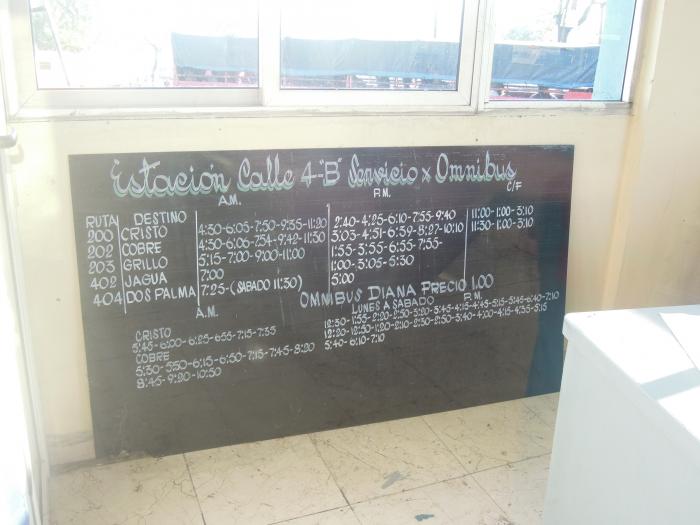 Estación Calle 4-"B" Servicio x Omnibus
A.M. P.M. C/F
RUTA DESTINO
200 CRISTO 4:30-6:05-7:50-9:35-11:20 2:40-4:25-6:10-7:55-9:40 11:00-1:00-3:10
202 COBRE 4:30-6:06-7:54-9:42-11:30 3:03-4:51-6:39-8:27-10:10 11:30-1:00-3:10
203 GRILLO 5:15-7:00-9:00-11:00 1:55-3:55-6:55-7:55-
402 JAGUA 7:00 1:00-3:05-5:30
404 DOS PALMA 7:25-(SABADO 11:30) 5:00
OMNIBUS DIANA PRECIO 1.00
LUNES A SABADO
A.M. P.M.
CRISTO
5:45-6:00-6:25-6:55-7:15-7:35 12:30-1:55-2:20-2:50-3:20-3:45-4:15-4:45-5:15-5:45-6:40-7:10
COBRE
5:30-5:50-6:15-6:50-7:15-7:45-8:20 12:20-12:50-1:20-2:10-2:30-2:50-3:40-4:00-4:15-4:35-5:15
8:45-9:20-10:50 5:40-6:10-7:10